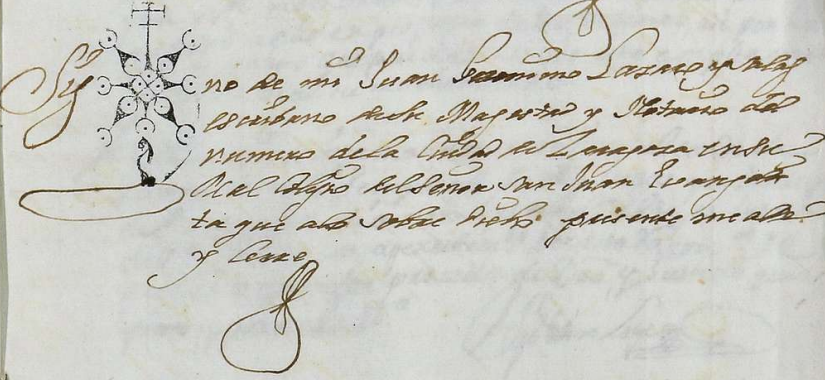 Sig no de mi Juan Geronimo Lazaro y
escribano de Su Magestad y Notario del
numero de la Ciudad de Zaragoza en su
Real Colegio del Señor san Juan Evangelis
ta que a lo sobre dicho presente me alle
y Cerre